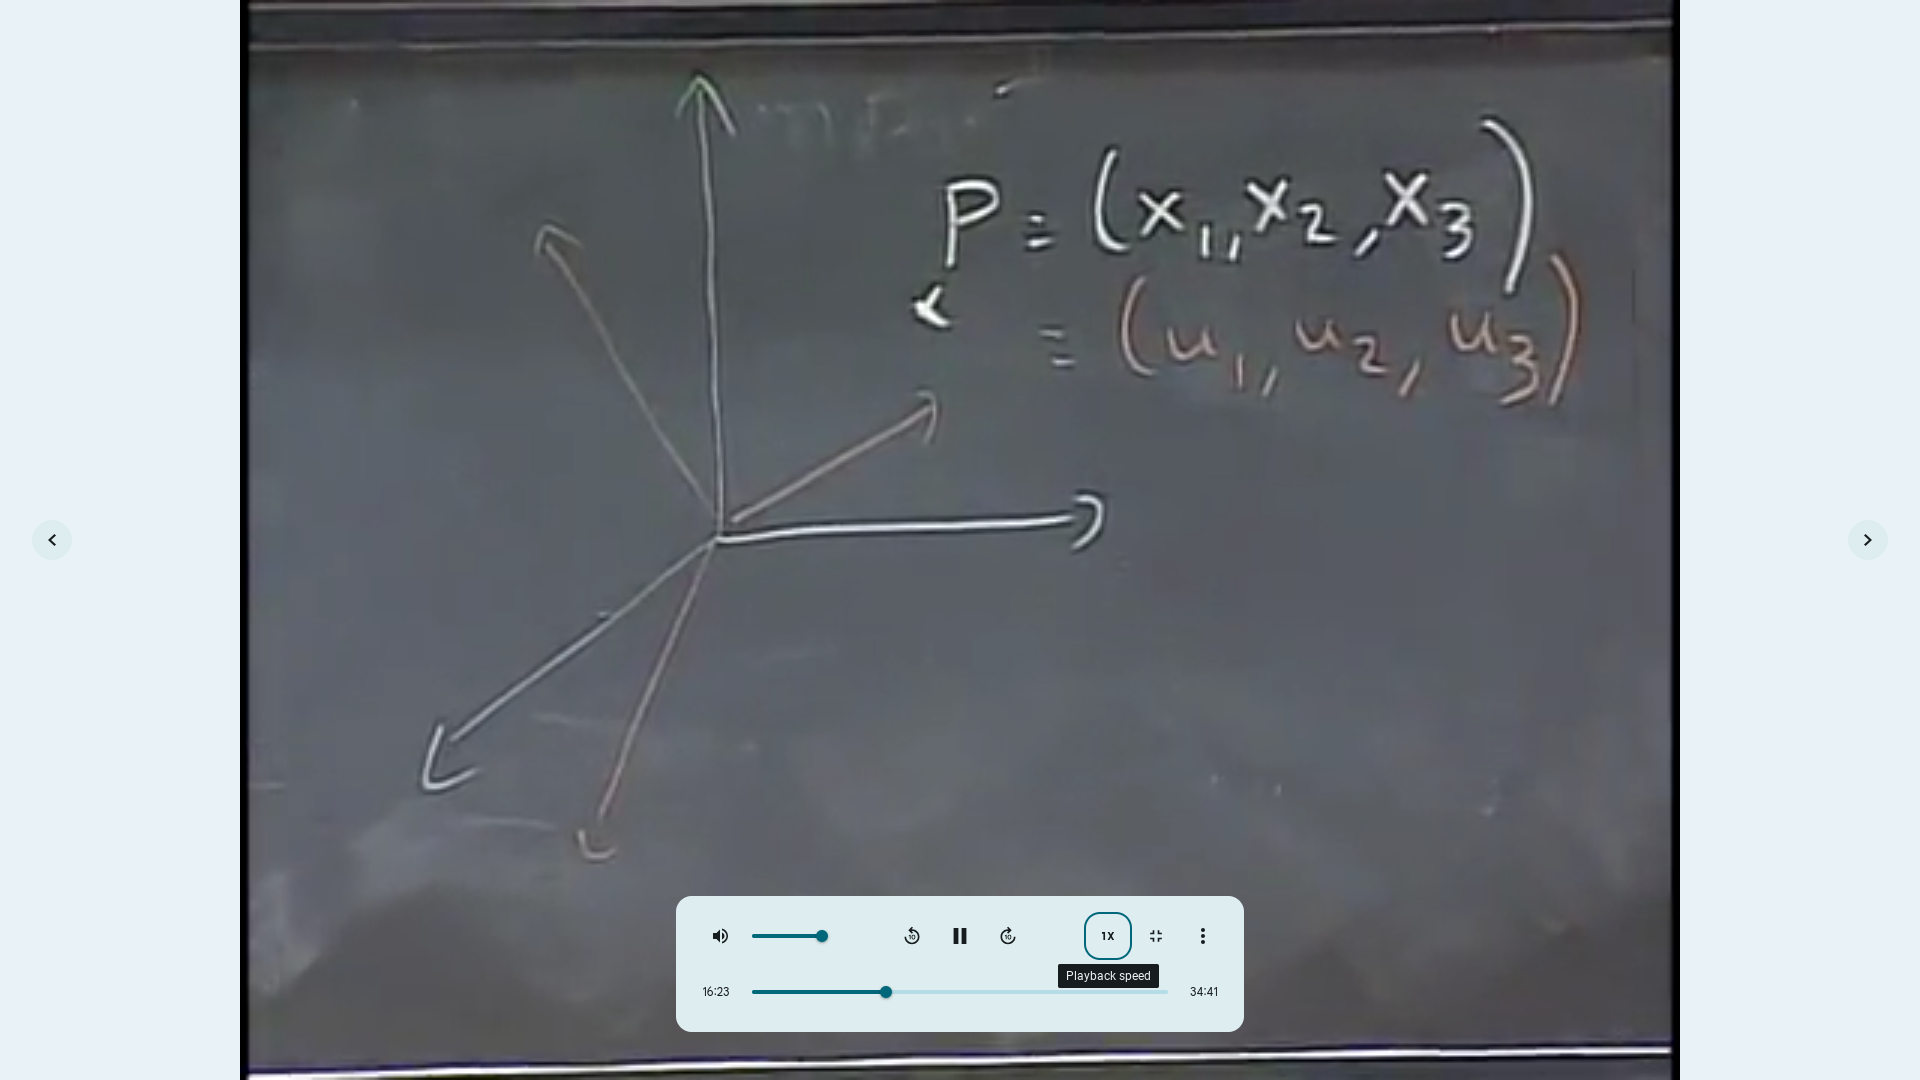 P = (x₁, x₂, x₃)
= (u₁, u₂, u₃)
1X
Playback speed
16:23
34:41